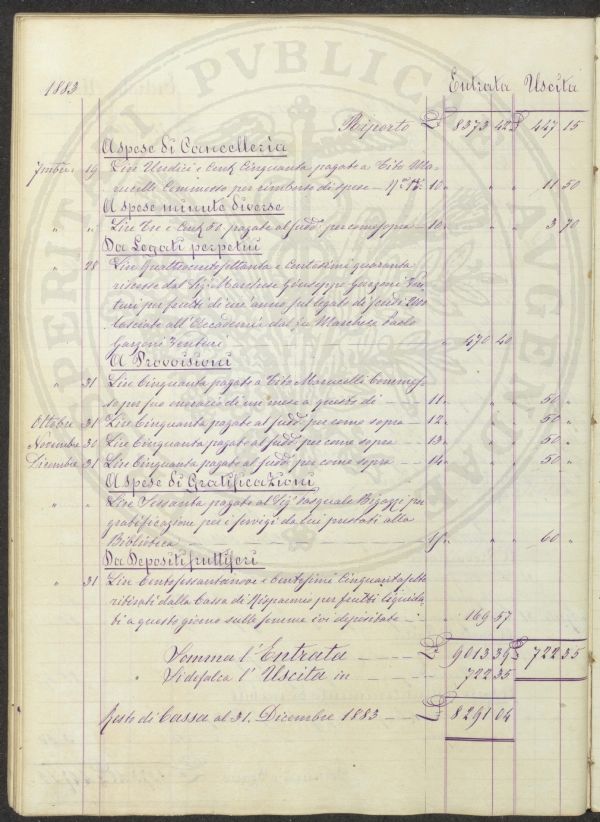 1883 Entrata Uscita
Riporto £ 8373 42 £ 447 15
A spese di Cancelleria
7mbre 19 Lire Undici e Cent. Cinquanta pagate a Tito Ma-
rucelli Commesso per rimborso di spese 10 " " 11 50
A spese minute diverse
" " Lire Tre e Cent. 70. pagate al sudd. per come sopra 10 " " 3 70
Da Legati perpetui
" 28 Lire Quattrocentosettanta e Centesimi quaranta
riscosse dal Sig. Marchese Giuseppe Garzoni Ven-
turi per frutti di un anno sul legato di scudi
lasciato all'Accademia dal fu Marchese Paolo
Garzoni Venturi " 470 40
A Provvisioni
" 31 Lire Cinquanta pagate a Tito Marucelli Commes-
so per suo onorario di un mese a questo dì 11 " " 50 "
Ottobre 31 Lire Cinquanta pagate al sudd. per come sopra 12 " " 50 "
Novembre 30 Lire Cinquanta pagate al sudd. per come sopra 13 " " 50 "
Dicembre 31 Lire Cinquanta pagate al sudd. per come sopra 14 " " 50 "
A spese di Gratificazioni
" " Lire Sessanta pagate al Sig. Pasquale Bigazzi per
gratificazione per servigi da lui prestati alla
Biblioteca 15 " " 60 "
Da Depositi fruttiferi
" 31 Lire Centosessantanove e Centesimi Cinquantasette
ritirati dalla Cassa di Risparmio per frutti liquida-
ti a questo giorno sulle somme ivi depositate 169 57
Somma l'Entrata £ 9013 39 £ 722 35
Si defalca l'Uscita in 722 35
Resto di Cassa al 31. Dicembre 1883 £ 8291 04
PROSPERITATI PVBLICAE AVGENDAE